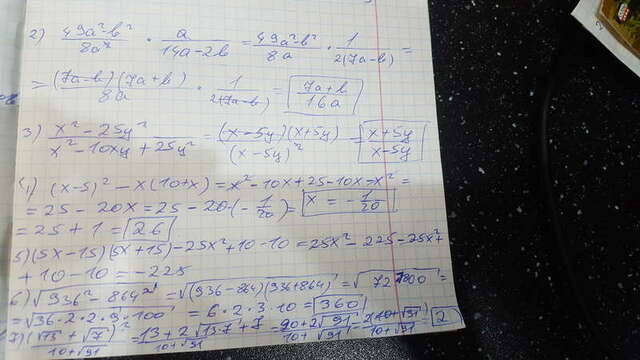 2) (49a²-b²)/(8a²) · a/(14a-2b) = (49a²-b²)/(8a) · 1/(2(7a-b)) =
= ((7a-b)(7a+b))/(8a) · 1/(2(7a-b)) = (7a+b)/(16a)
3) (x²-25y²)/(x²-10xy+25y²) = ((x-5y)(x+5y))/((x-5y)²) = (x+5y)/(x-5y)
4) (x-5)² - x(10+x) = x²-10x+25-10x-x² =
= 25-20x = 25-20·(-1/20) = x = -1/20
= 25+1 = 26
5) (5x-15)(5x+15)-25x²+10-10 = 25x²-225-25x²+
+10-10 = -225
6) √(936²-864²) = √((936-864)(936+864)) = √(72 · 1800) =
= √(36·2·2·9·100) = 6·2·3·10 = 360
7) (√13+√7)²/(10+√91) = (13+2√(13·7)+7)/(10+√91) = (20+2√91)/(10+√91) = 2(10+√91)/(10+√91) = 2